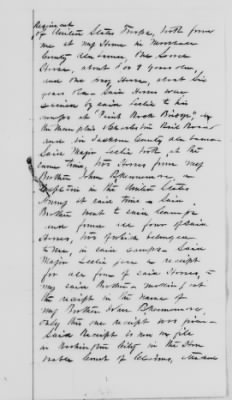 Regiment
of United States Troops, both from
me at my Home in Marshall
County Alabama. One Sorrel
Horse, about 7 or 8 years old,
and One Bay Horse, about six
years old. Said Horses were
carried by said Leslie to his
camps at "Paint Rock Bridge" on
the Memphis & Charleston Rail Road
and in Jackson County Alabama
Said Major Leslie took, at the
same time, two Horses from my
Brother John, a
Captain in the United States
Army at said time - Said
Brother went to said Camps
and found all four of said
Horses, two of which belonged
to me, in said camps - Said
Major Leslie gave a receipt
for all four of said Horses, to
my said Brother - making out
the receipt in the name of
my Brother John
Only this one receipt was given
Said Receipt is now on file
in Washington City in the Hon
orable Court of Claims, attached